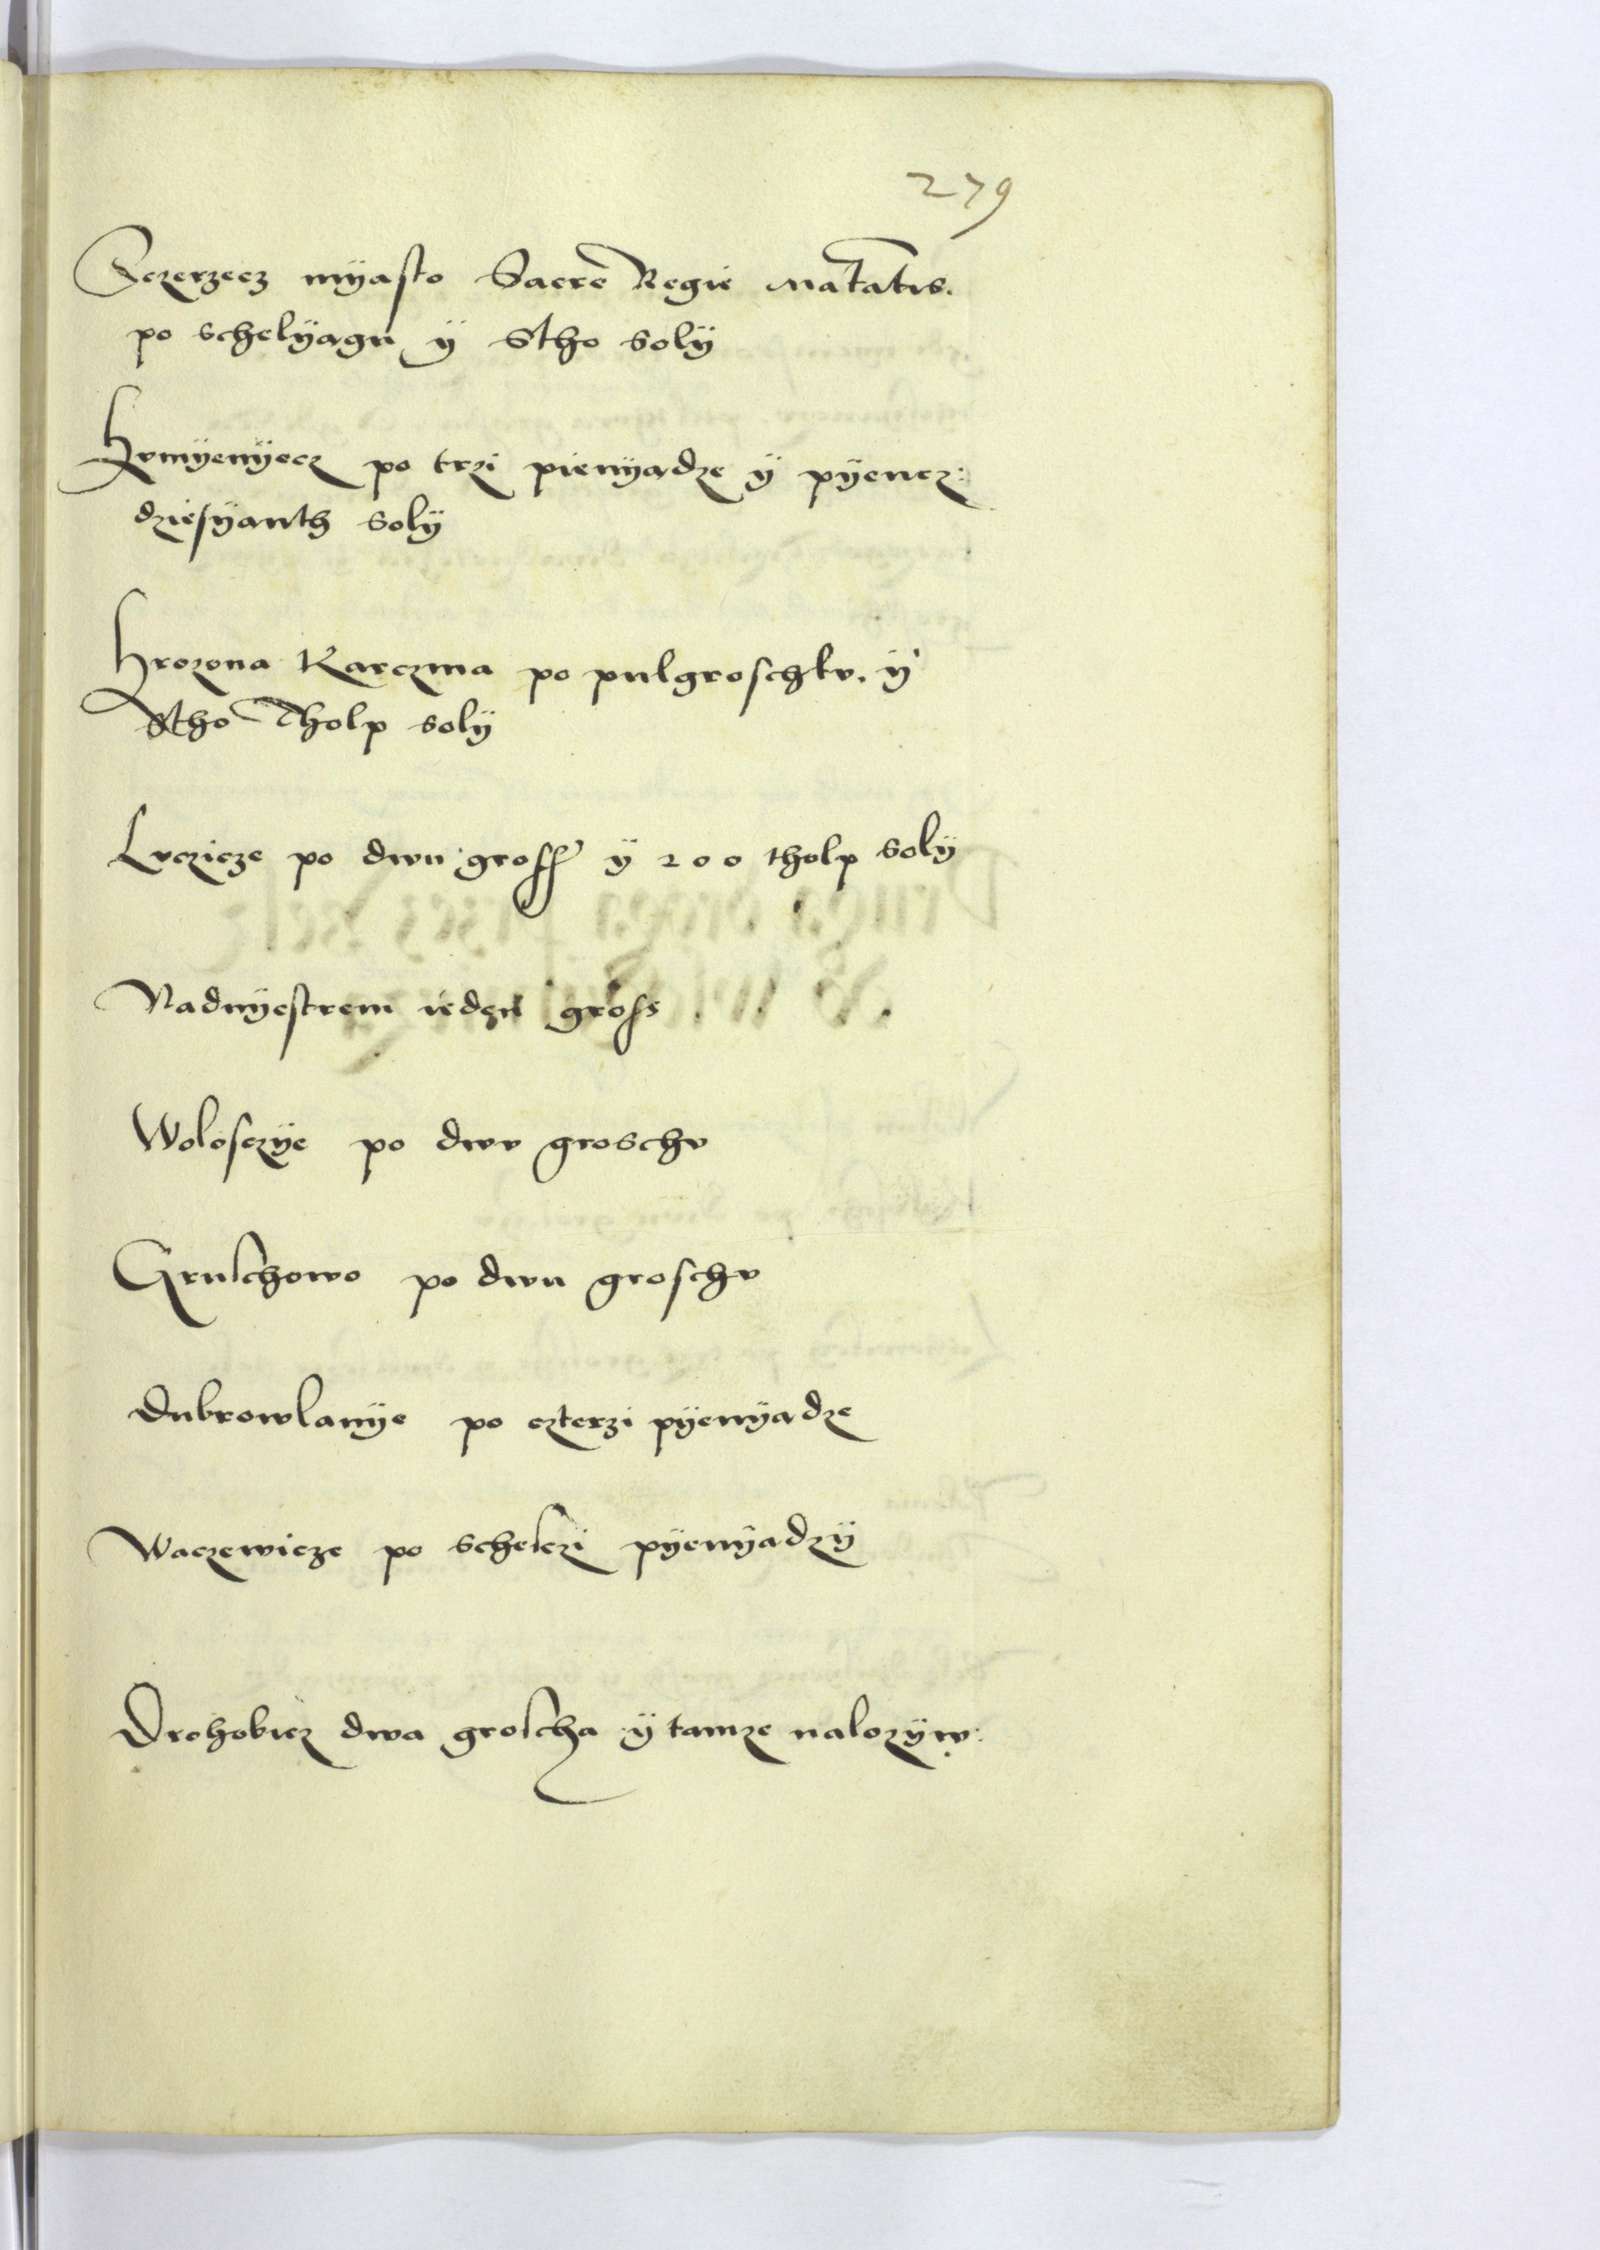 279
Sczerzecz myasto Sacre Regie Ma̅ta̅tis.
po schelyagu ÿ Stho solÿ
Hvmÿenÿecz po trzi pienÿadze ÿ pÿencz:
dziesÿanth solÿ
Hrozona Karczma po pulgroschkv. ÿ
Stho Tholp solÿ
Lvczicze po dwu gross ÿ 200 tholp solÿ
Nadnÿestrem ieden gross
Woloszcÿe po dwv groschv
Gruschowo po dwu groschv
Dubrowlanÿe po czterzi pÿenÿadze
Waczewicze po scheszi pÿenÿadzÿ
Drohobicz dwa groscha ÿ tamze nalozÿw: